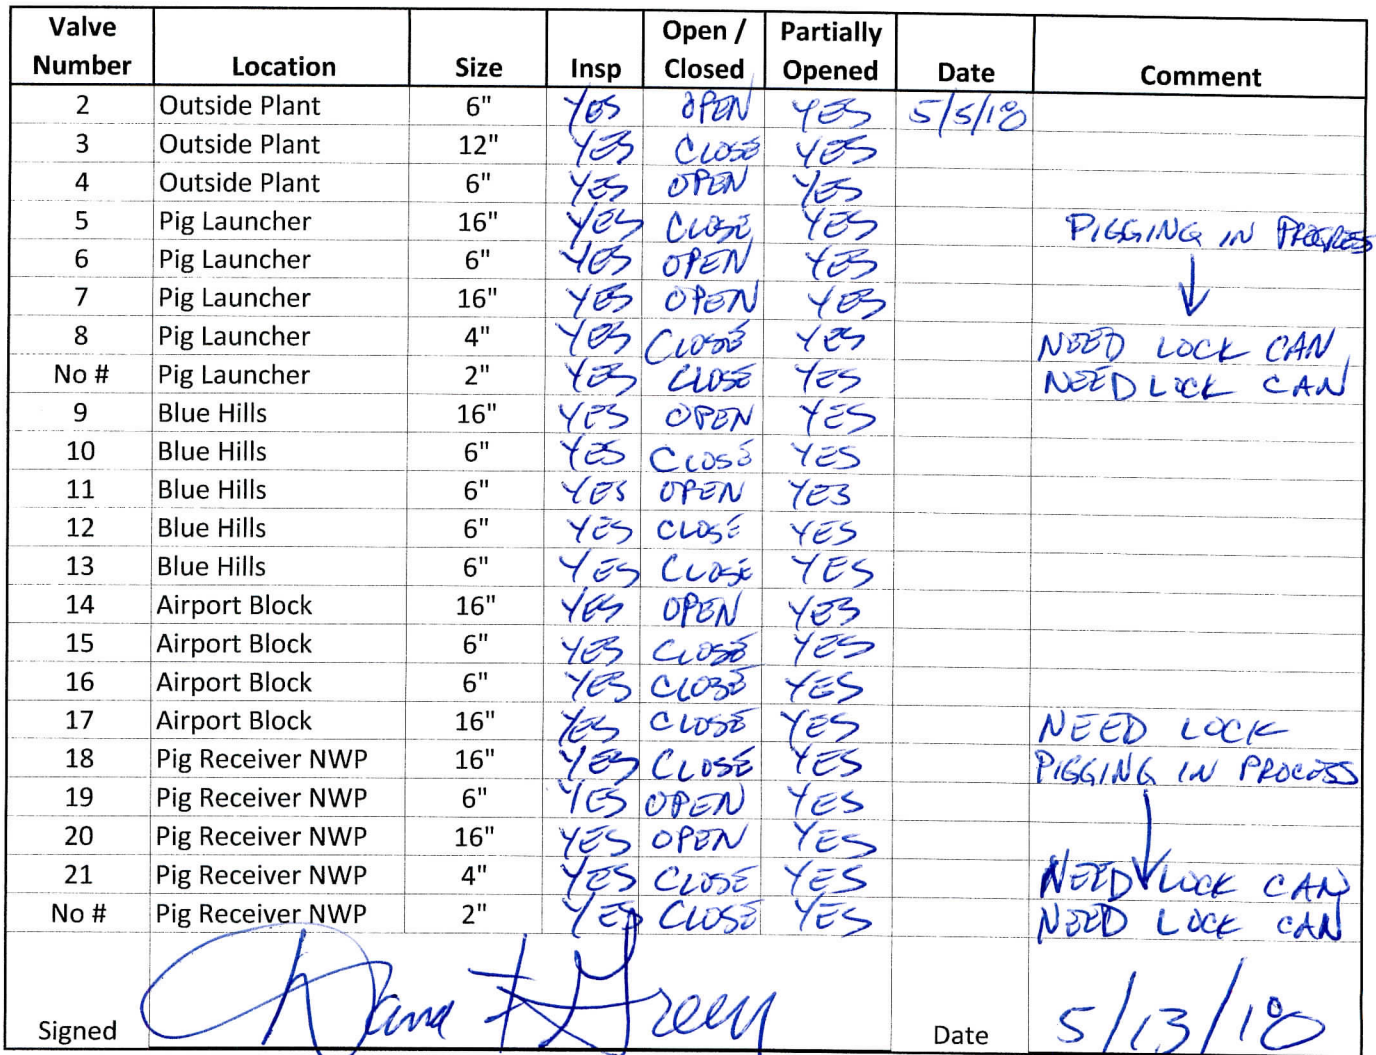 Valve Number Location Size Insp Open / Closed Partially Opened Date Comment
2 Outside Plant 6" YES OPEN YES 5/5/18
3 Outside Plant 12" YES CLOSE YES
4 Outside Plant 6" YES OPEN YES
5 Pig Launcher 16" YES CLOSE YES PIGGING IN PROGRESS
6 Pig Launcher 6" YES OPEN YES
7 Pig Launcher 16" YES OPEN YES
8 Pig Launcher 4" YES CLOSE YES NEED LOCK CAN
No # Pig Launcher 2" YES CLOSE YES NEED LOCK CAN
9 Blue Hills 16" YES OPEN YES
10 Blue Hills 6" YES CLOSE YES
11 Blue Hills 6" YES OPEN YES
12 Blue Hills 6" YES CLOSE YES
13 Blue Hills 6" YES CLOSE YES
14 Airport Block 16" YES OPEN YES
15 Airport Block 6" YES CLOSE YES
16 Airport Block 6" YES CLOSE YES
17 Airport Block 16" YES CLOSE YES NEED LOCK
18 Pig Receiver NWP 16" YES CLOSE YES PIGGING IN PROCESS
19 Pig Receiver NWP 6" YES OPEN YES
20 Pig Receiver NWP 16" YES OPEN YES
21 Pig Receiver NWP 4" YES CLOSE YES NEED LOCK CAN
No # Pig Receiver NWP 2" YES CLOSE YES NEED LOCK CAN
Signed Date 5/13/18